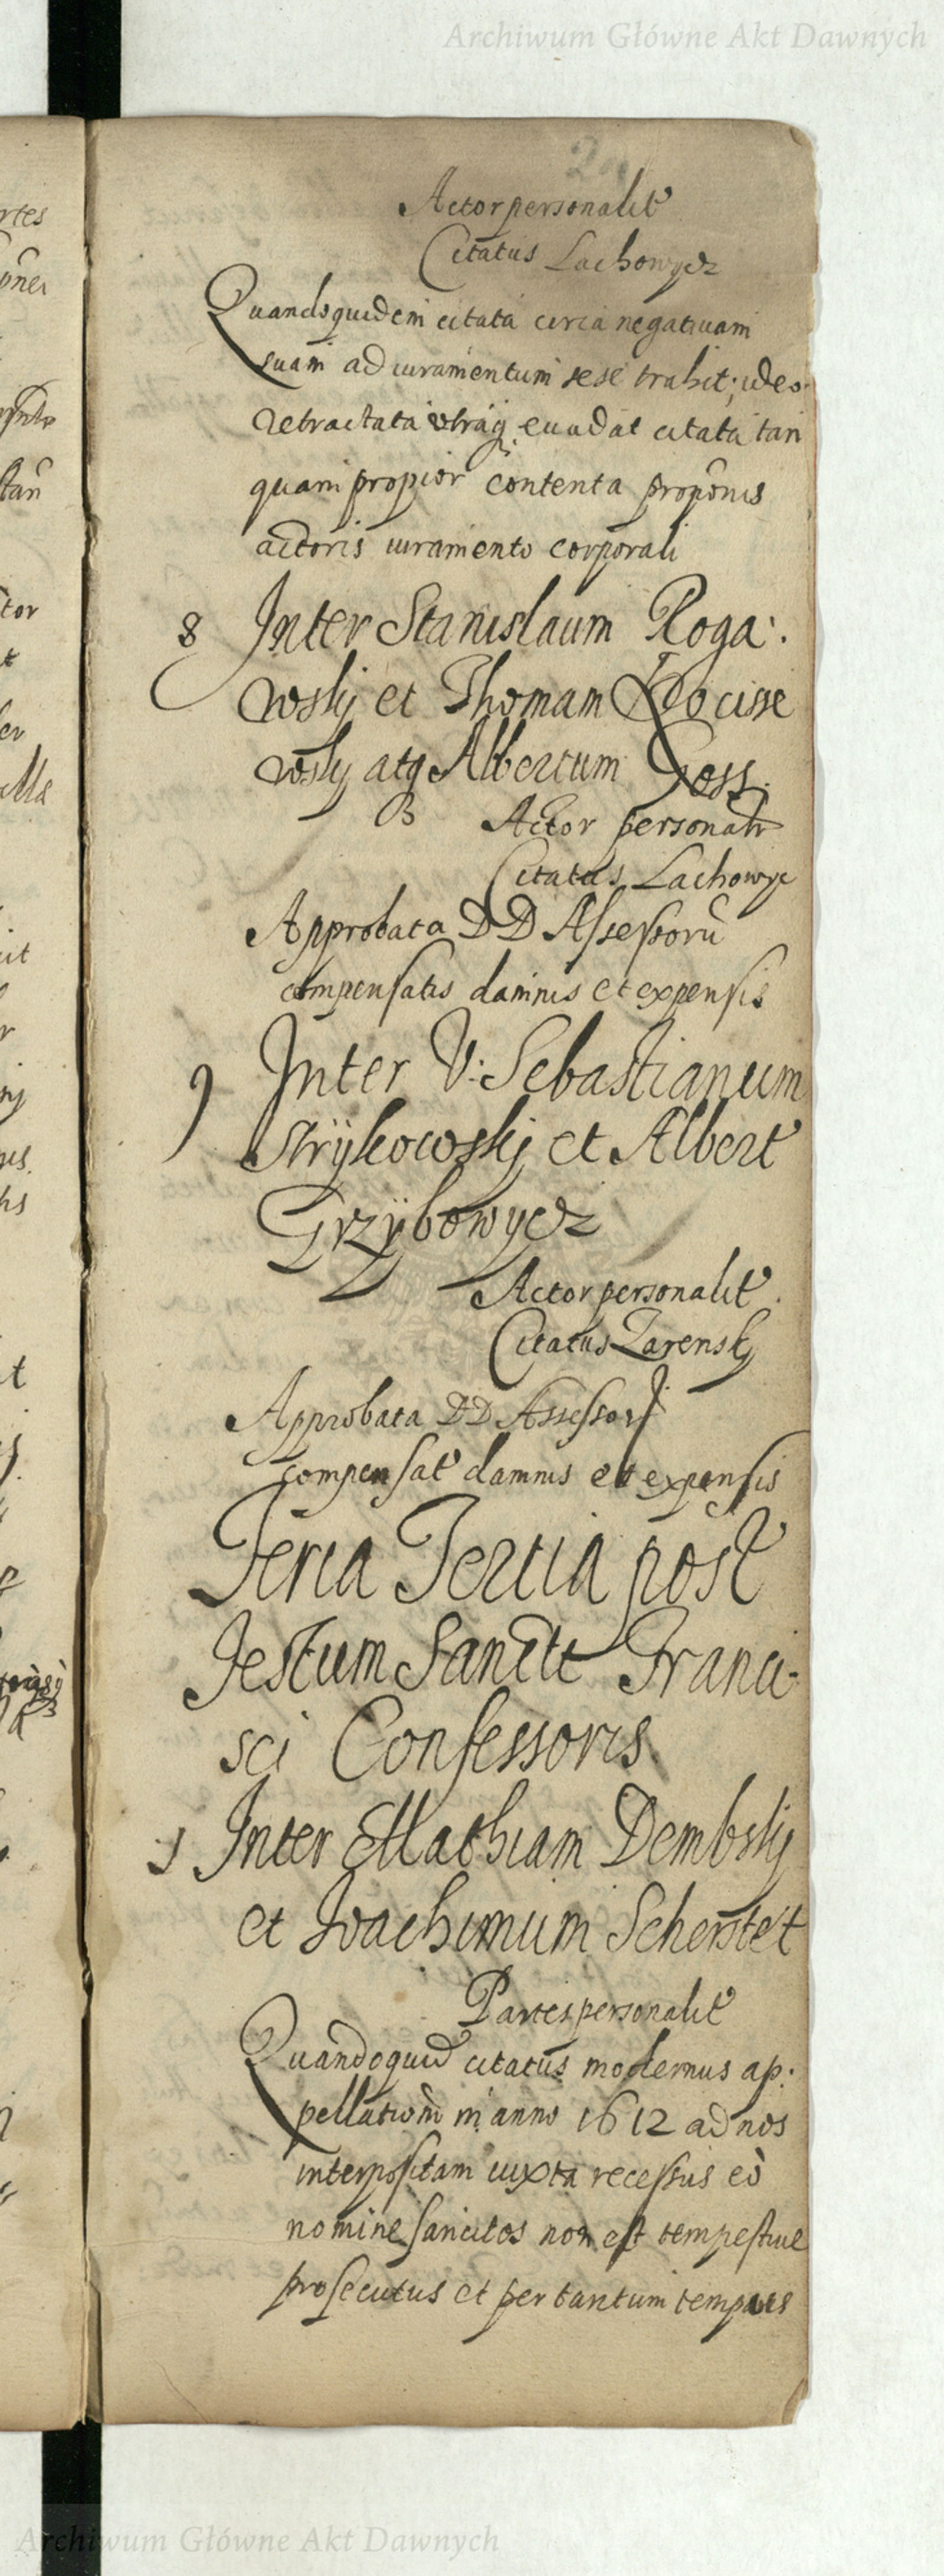 Archiwum Główne Akt Dawnych
Actor personalit
Citatus Lachowycz
Quandoquidem citata circa negativam
suam ad iuramentum sese trahit; ideo
retractata utraq evadat citata tan
quam propior contenta proponis
actoris iuramento corporali
8 Inter Stanislaum Roga:
wskij et Thomam
wskij atq Albertum Goss.
Actor personalr
Citatus Lachowyc
Approbata DD Assessorũ
compensatis damnis et expensis
9 Inter V: Sebastianum
Strÿkowskij et Albert
Grzÿbowycz
Actor personalit
Citatus Zarensky
Approbata DD Assessor
compensat damnis et expensis
Feria Tertia post
Festum Sancti Franci-
sci Confessoris
1 Inter Mathiam Dembskij
et Joachimum Scherstet
Partes personalit
Quandoquid citatus modernus ap:
pellationẽ in anno 1612 ad nos
interpositam iuxta recessus eò
nomine sancitos non est tempestive
prosecutus et per tantum tempus
rtes
tor
Archiwum Główne Akt Dawnych